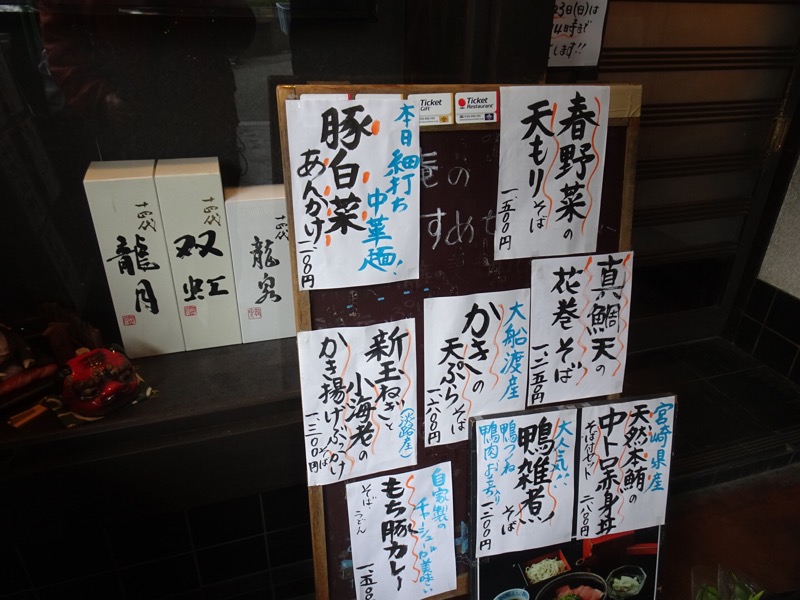 3日(日)は
14時まで
します!!
Ticket
Gift
Ticket
Restaurant
庵の
すめ
本日細打ち
中華麺!
豚白菜
あんかけ
一、一〇〇円
春野菜の
天もり
そば
一、五〇〇円
真鯛天の
花巻そば
一、二五〇円
大船渡産
かきの
天ぷら
そば
一、六〇〇円
新玉ねぎと
(淡路産)
小海老の
かき揚げぶっかけ
そば
一、三〇〇円
自家製の
チャーシューが美味い
もち豚カレー
そば
うどん
大人気!!
鴨つくね
鴨肉
入り
鴨雑煮
そば
一、三〇〇円
宮崎県産
天然本鮪の
中トロ赤身丼
そば付セット
二、八〇〇円
十四代
龍月
十四代
双虹
十四代
龍泉